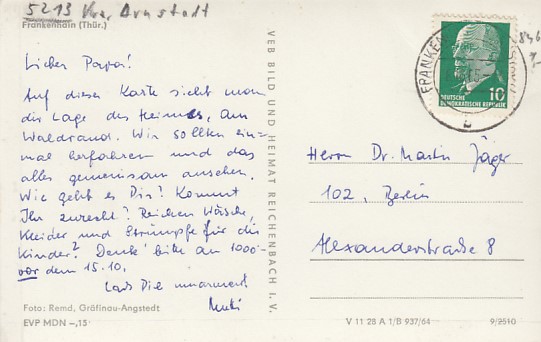 5213 Krs. Arnstadt
Frankenhain (Thür.)
Lieber Papa!
Auf dieser Karte sieht man
die Lage des Heimes, am
Waldrand. Wir sollten ein-
mal herfahren und das
alles gemeinsam ansehen.
Wie geht es Dir? Kommt
Ihr zurecht? Reichen Wäsche,
Kleider und Strümpfe für die
Kinder? Denk' bitte an 1000.-
vor dem 15.10.
Lass Dich umarmen!
Foto: Remd, Gräfinau-Angstedt
EVP MDN –,15
VEB BILD UND HEIMAT REICHENBACH I. V.
FRANKEN
10
DEUTSCHE
DEMOKRATISCHE REPUBLIK
b
Herrn Dr. Martin Jäger
102, Berlin
Alexanderstraße 8
V 11 28 A 1/B 937/64
9/2510